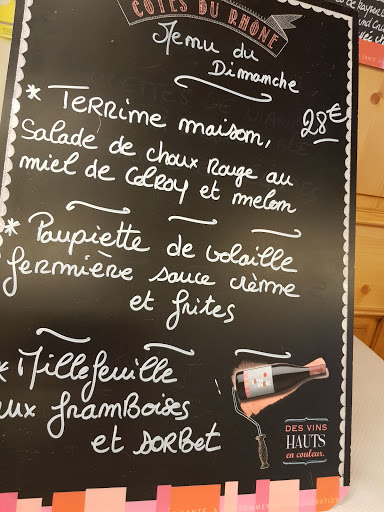 CÔTES DU RHÔNE
Menu du
Dimanche
* Terrine maison, 28€
Salade de choux Rouge au
miel de COLROY et melon
* Paupiette de volaille
fermière sauce crème
et frites
* Millefeuille
aux framboises
et sorbet
DES VINS
HAUTS
en couleur.